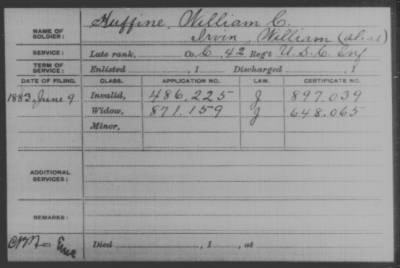 NAME OF SOLDIER: Huffine, William C.
Irvin, William (alias)
SERVICE: Late rank, Co. C, 42 Reg't U.S.C. Inf
TERM OF SERVICE: Enlisted , 1 Discharged , 1
DATE OF FILING. CLASS. APPLICATION NO. LAW. CERTIFICATE NO.
1883, June 9 Invalid, 486.225 J 897.039
Widow, 871.159 J 648.065
Minor,
ADDITIONAL SERVICES:
REMARKS:
Died , 1 , at